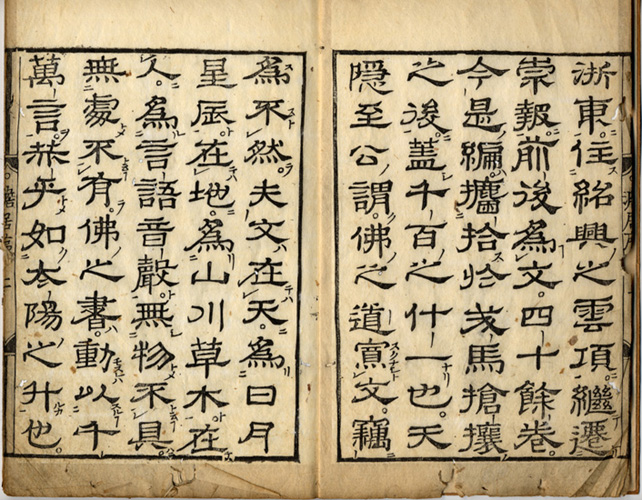 浙東。住紹興之雲項。繼遷
崇報。前後爲文。四十餘卷。
今是編。攟拾於戎馬搶攘
之後。蓋千百之什一也。天
隱至公。謂佛之道寘文。竊
爲不然。夫文在天。爲日月
星辰。在地。爲山川草木。在
人。爲言語音聲。無物不具。
無處不有。佛之書。動以千
萬言。恭乎如太陽之升也。